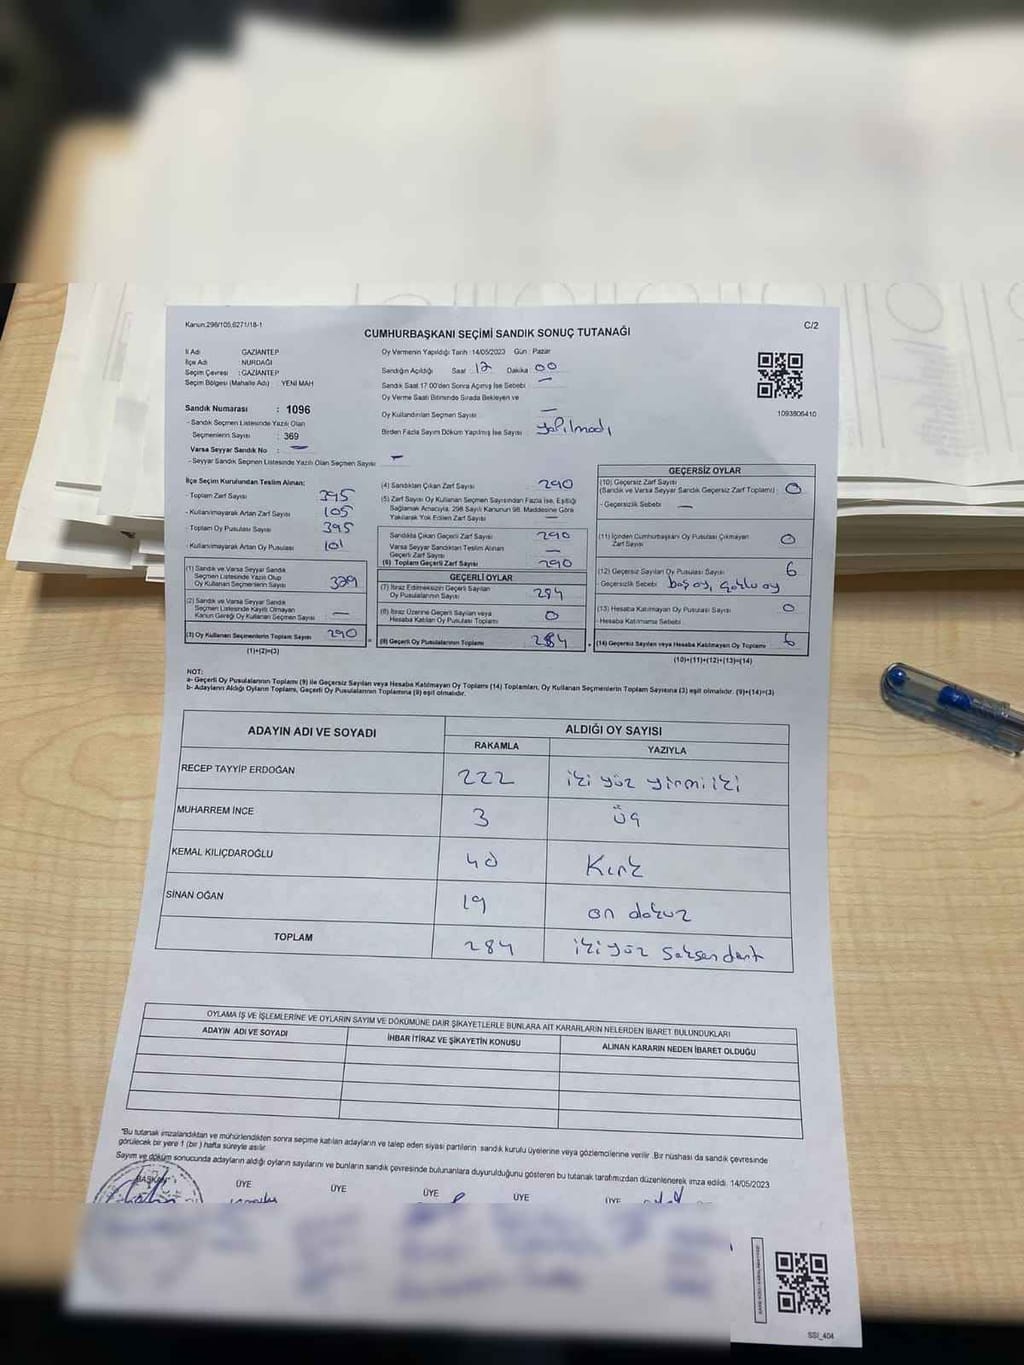 Kanun,298/105,6271/18-1
C/2
CUMHURBAŞKANI SEÇİMİ SANDIK SONUÇ TUTANAĞI
İl Adı GAZİANTEP
İlçe Adı NURDAĞI
Seçim Çevresi : GAZİANTEP
Seçim Bölgesi (Mahalle Adı) : YENİ MAH
Sandık Numarası : 1096
- Sandık Seçmen Listesinde Yazılı Olan
Seçmenlerin Sayısı : 369
Varsa Seyyar Sandık No : -
- Seyyar Sandık Seçmen Listesinde Yazılı Olan Seçmen Sayısı -
Oy Vermenin Yapıldığı Tarih :14/05/2023 Gün : Pazar
Sandığın Açıldığı Saat 17 Dakika 00
Sandık Saat 17:00'den Sonra Açımış İse Sebebi -
Oy Verme Saati Bitiminde Sırada Bekleyen ve
Oy Kullandırılan Seçmen Sayısı -
Birden Fazla Sayım Döküm Yapılmış İse Sayısı yapılmadı
1093806410
İlçe Seçim Kurulundan Teslim Alınan:
- Toplam Zarf Sayısı 395
- Kullanılmayarak Artan Zarf Sayısı 105
- Toplam Oy Pusulası Sayısı 395
- Kullanılmayarak Artan Oy Pusulası 101
(1) Sandık ve Varsa Seyyar Sandık
Seçmen Listesinde Yazılı Olup
Oy Kullanan Seçmenlerin Sayısı 329
(2) Sandık ve Varsa Seyyar Sandık
Seçmen Listesinde Kayıtlı Olmayan
Kanun Gereği Oy Kullanan Seçmen Sayısı -
(3) Oy Kullanan Seçmenlerin Toplam Sayısı 290
(1)+(2)=(3)
(4) Sandıktan Çıkan Zarf Sayısı 290
(5) Zarf Sayısı Oy Kullanan Seçmen Sayısından Fazla İse, Eşitliği
Sağlamak Amacıyla, 298 Sayılı Kanunun 98. Maddesine Göre
Yakılarak Yok Edilen Zarf Sayısı -
Sandıkta Çıkan Geçerli Zarf Sayısı 290
Varsa Seyyar Sandıktan Teslim Alınan
Geçerli Zarf Sayısı -
(6) Toplam Geçerli Zarf Sayısı 290
GEÇERLİ OYLAR
(7) İtiraz Edilmeksizin Geçerli Sayılan
Oy Pusulalarının Sayısı 284
(8) İtiraz Üzerine Geçerli Sayılan veya
Hesaba Katılan Oy Pusulası Toplamı 0
(9) Geçerli Oy Pusulalarının Toplamı 284
GEÇERSİZ OYLAR
(10) Geçersiz Zarf Sayısı
(Sandık ve Varsa Seyyar Sandık Geçersiz Zarf Toplamı) : 0
- Geçersizlik Sebebi -
(11) İçinden Cumhurbaşkanı Oy Pusulası Çıkmayan
Zarf Sayısı 0
(12) Geçersiz Sayılan Oy Pusulası Sayısı 6
- Geçersizlik Sebebi boş oy,
(13) Hesaba Katılmayan Oy Pusulası Sayısı 0
- Hesaba Katılmama Sebebi
(14) Geçersiz Sayılan veya Hesaba Katılmayan Oy Toplamı 6
(10)+(11)+(12)+(13)=(14)
NOT:
a- Geçerli Oy Pusulalarının Toplamı (9) ile Geçersiz Sayılan veya Hesaba Katılmayan Oy Toplamı (14) Toplamları, Oy Kullanan Seçmenlerin Toplam Sayısına (3) eşit olmalıdır. (9)+(14)=(3)
b- Adayların Aldığı Oyların Toplamı, Geçerli Oy Pusulalarının Toplamına (9) eşit olmalıdır.
ADAYIN ADI VE SOYADI ALDIĞI OY SAYISI
RAKAMLA YAZIYLA
RECEP TAYYİP ERDOĞAN 222 iki yüz yirmi iki
MUHARREM İNCE 3 üç
KEMAL KILIÇDAROĞLU 40 Kırk
SİNAN OĞAN 19 on dokuz
TOPLAM 284 iki yüz seksen dört
OYLAMA İŞ VE İŞLEMLERİNE VE OYLARIN SAYIM VE DÖKÜMÜNE DAİR ŞİKAYETLERLE BUNLARA AİT KARARLARIN NELERDEN İBARET BULUNDUKLARI
ADAYIN ADI VE SOYADI İHBAR İTİRAZ VE ŞİKAYETİN KONUSU ALINAN KARARIN NEDEN İBARET OLDUĞU
"Bu tutanak imzalandıktan ve mühürlendikten sonra seçime katılan adayların ve talep eden siyasi partilerin sandık kurulu üyelerine veya gözlemcilerine verilir. Bir nüshası da sandık çevresinde
görülecek bir yere 1 (bir ) hafta süreyle asılır.
Sayım ve döküm sonucunda adayların aldığı oyların sayılarını ve bunların sandık çevresinde bulunanlara duyurulduğunu gösteren bu tutanak tarafımızdan düzenlenerek imza edildi. 14/05/2023
BAŞKAN ÜYE ÜYE ÜYE ÜYE ÜYE
SSI_404